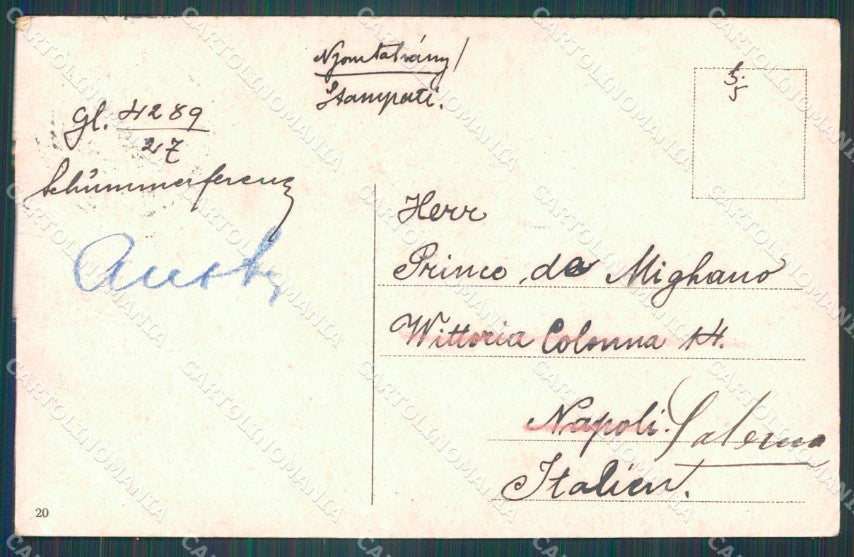 Nyomtatvány/
Stampati.
5.
5
Gl. 4289
27
Schümmerferenz
Herr
Prince de Mighano
Wittoria Colonna 14.
Napoli. Salerno
Italien.
20
CARTOLINOMANIA